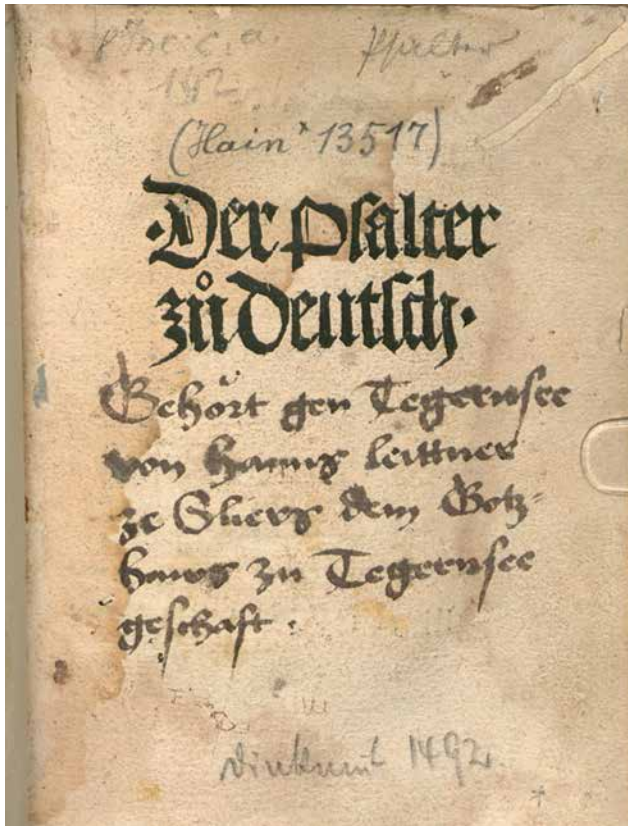 pInc. c. a.
142 Psalter
(Hain* 13517)
·Der Psalter
zů Deutsch·
Gehört gen Tegernsee
von Hanns leittner
ze Sliers dem Gotz-
haws zu Tegernsee
geschaft.
1492.